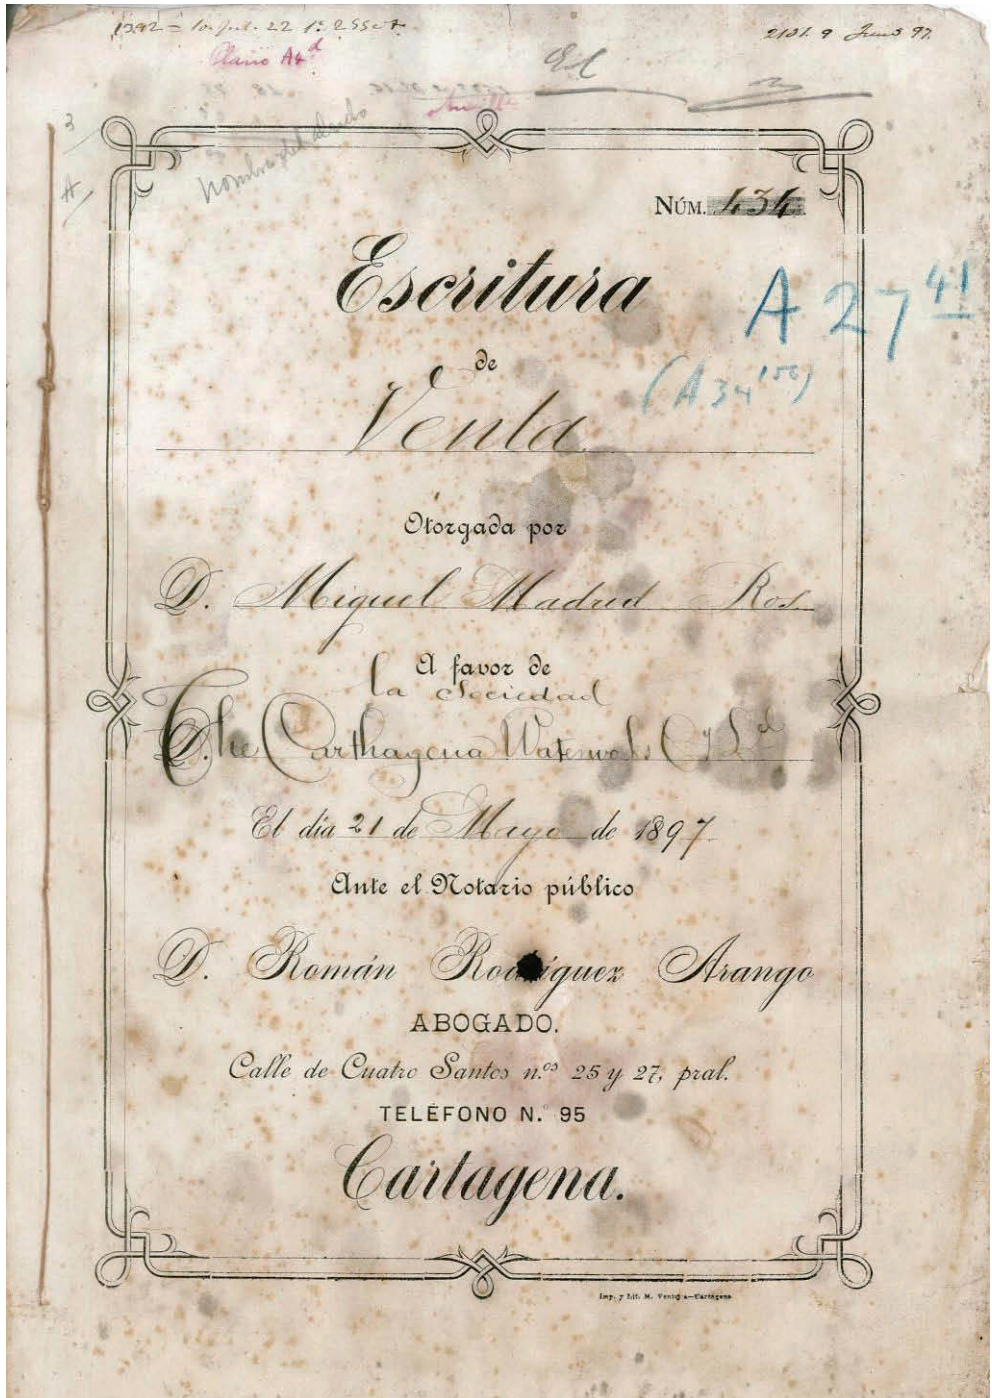 2131. 9 Junio 97.
Plano A4d
Nombre del
3
A
NÚM. 434
Escritura
A 27 41
de
(A 34 156)
Venta
Otorgada por
D. Miguel Madrid Ros
A favor de
la Sociedad
The Carthagena Waterworks Cy Ld
El día 21 de Mayo de 1897.
Ante el Notario público
D. Román Rodríguez Arango
ABOGADO.
Calle de Cuatro Santos n.os 25 y 27, pral.
TELÉFONO N. 95
Cartagena.
Imp. y Lit. M. Ventura—Cartagena